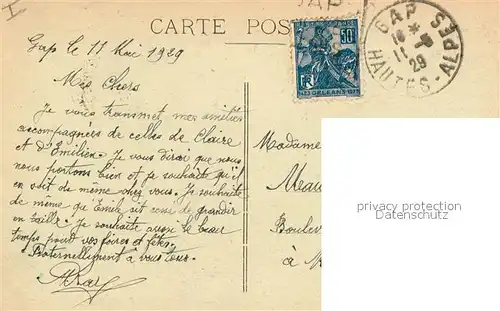 CARTE POS
GAP
HAUTES-ALPES
11
29
50c
RF
1429 ORLEANS 1929
Gap le 11 Mai 1929
Mes Chers
Je vous transmet mes amitiés
accompagnées de celles de Claire
et d'Emilien. Je vous dirai que nous
nous portons bien et je souhaite qu'il
en soit de même chez vous. Je souhaite
de même qu'Emile ait cessé de grandir
en taille. Je souhaite aussi le beau
temps pour vos foires et fêtes.
Fraternellement à vous tous.
Madame
Meau
Boulev
à
privacy protection
Datenschutz